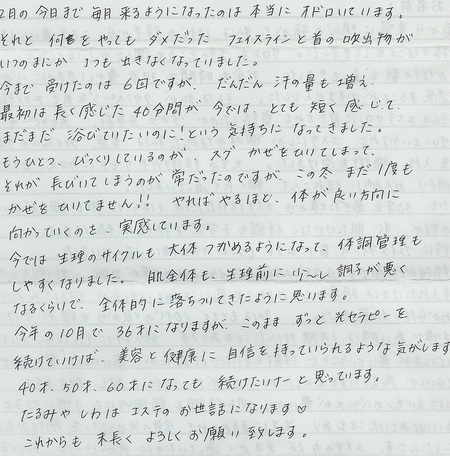 2月の今日まで毎月来るようになったのは本当にオドロいています。
それと何をやってもダメだったフェイスラインと首の吹出物が
いつのまにか1つも出きなくなっていました。
今まで受けたのは6回ですが、だんだん汗の量も増え、
最初は長く感じた40分間が今では、とても短く感じて、
まだまだ浴びていたいのに!という気持ちになってきました。
もうひとつ、びっくりしているのが、スグかぜをひいてしまって、
それが長びいてしまうのが常だったのですが、この冬まだ1度も
かぜをひいてません!! やればやるほど、体が良い方向に
向かっていくのを、実感しています。
今では生理のサイクルも大体つかめるようになって、体調管理も
しやすくなりました。肌全体も、生理前に少〜し調子が悪く
なるくらいで、全体的に落ちついてきたように思います。
今年の10月で36才になりますが、このままずっと光セラピーを
続けていけば、美容と健康に自信を持っていられるような気がします
40才、50才、60才になっても続けたいナーと思っています。
たるみやしわはエステのお世話になります♡
これからも末長くよろしくお願い致します。